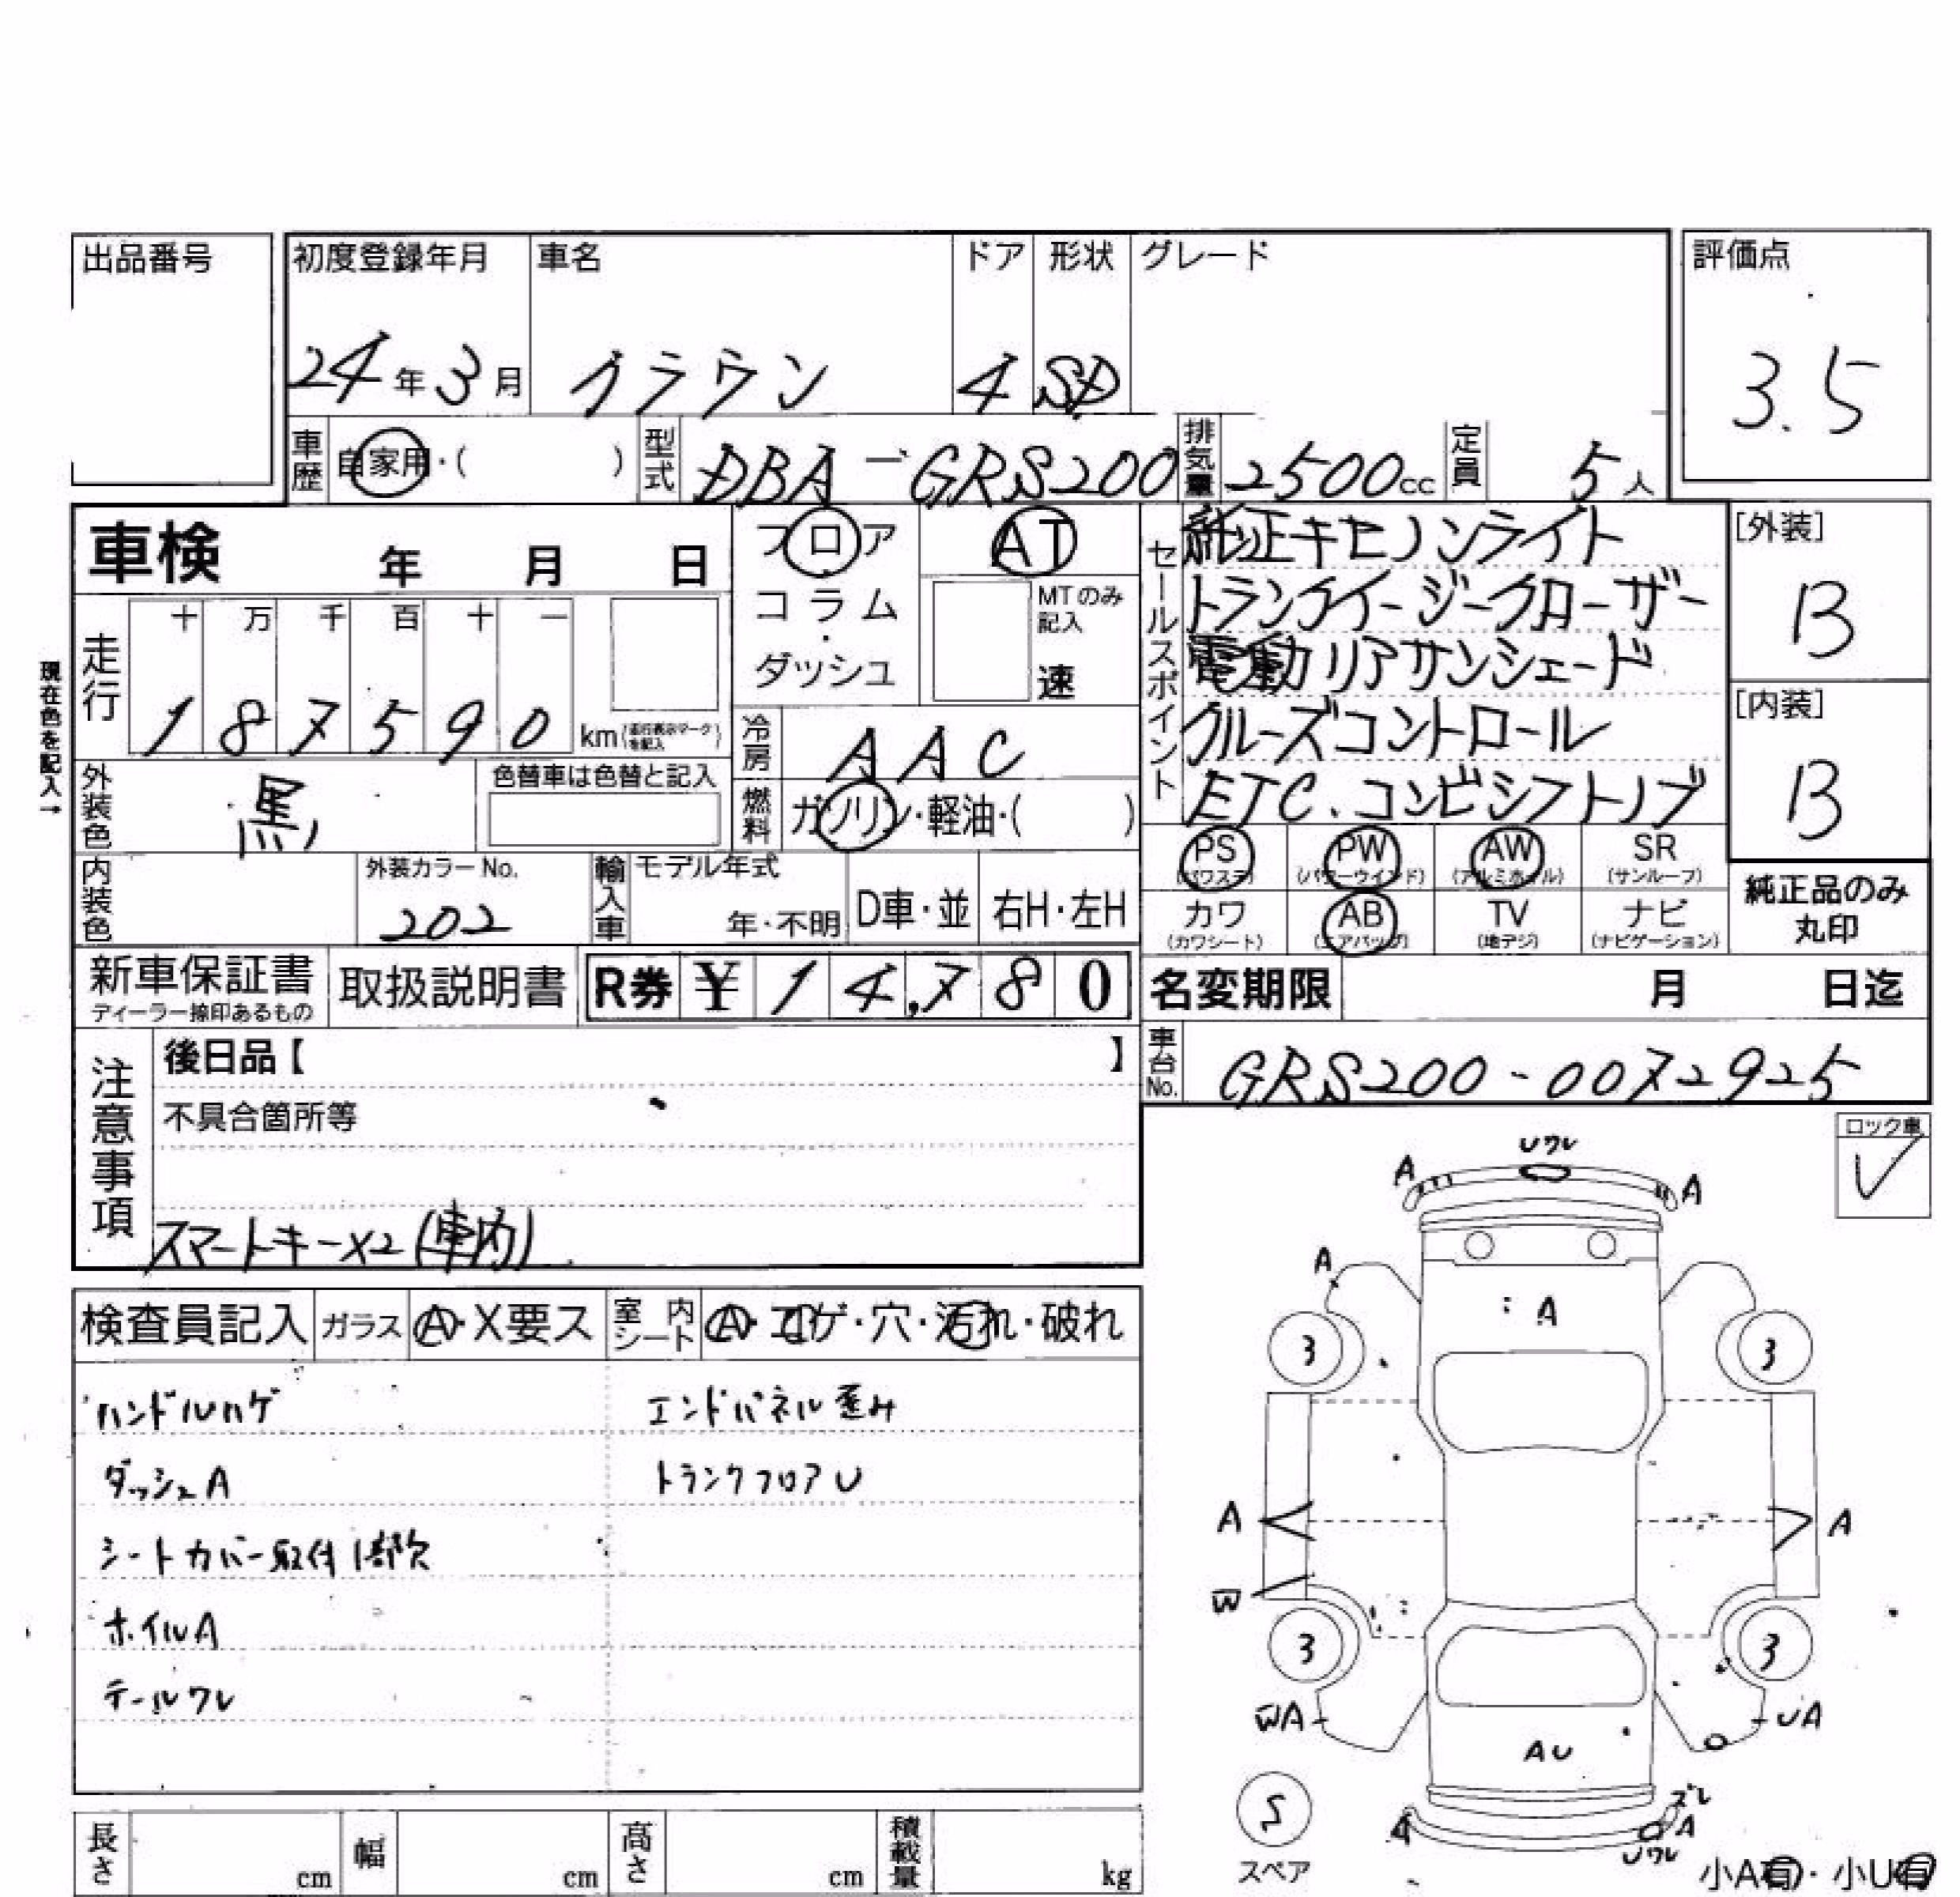 出品番号
初度登録年月 車名 ドア 形状 グレード 評価点
24年3月 クラウン 4 SD 3.5
車歴 自家用・( ) 型式 DBA-GRS200 排気量 2500cc 定員 5人
車検 年 月 日 フロア AT
コラム・ダッシュ MTのみ記入 速
現在色を記入→
走行 十 万 千 百 十 一
1 8 7 5 9 0 km
セールスポイント 純正キセノンライト
トランクイージークローザー
電動リアサンシェード
クルーズコントロール
ETC.コンビシフトノブ
[外装]
B
[内装]
B
冷房 AAC
外装色 黒 色替車は色替と記入 燃料 ガソリン・軽油・( )
PS (パワステ) PW (パワーウインド) AW (アルミホイル) SR (サンルーフ)
カワ (カワシート) AB (エアバッグ) TV (地デジ) ナビ (ナビゲーション)
純正品のみ
丸印
内装色 外装カラーNo. 202 輸入車 モデル年式 年・不明 D車・並 右H・左H
新車保証書 ディーラー捺印あるもの 取扱説明書 R券 ¥ 1 4,7 8 0 名変期限 月 日迄
車台No. GRS200-0072925
注意事項 後日品【 】
不具合箇所等
スマートキーX2(車内)
ロック車
検査員記入 ガラス A・X要ス 室内シート A・コゲ・穴・汚れ・破れ
ハンドルハゲ エンドパネル歪み
ダッシュA トランクフロアU
シートカバー取付1部欠
ホイルA
テールワレ
Uワレ
A A
A
A
3 3
A A
W
3 3
WA UA
AU
S
スペア
ズレ
A A
Uワレ
小A有・小U有
長さ cm 幅 cm 高さ cm 積載量 kg